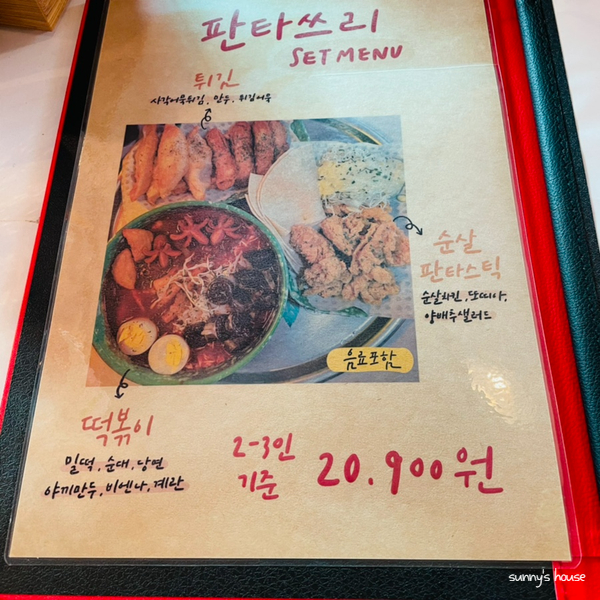 판타쓰리
SET MENU
튀김
사각어묵튀김, 만두, 튀김어묵
순살
판타스틱
순살치킨, 또띠아,
양배추샐러드
음료포함
떡볶이
밀떡, 순대, 당면
야끼만두, 비엔나, 계란
2-3인
기준
20.900원
sunny's house